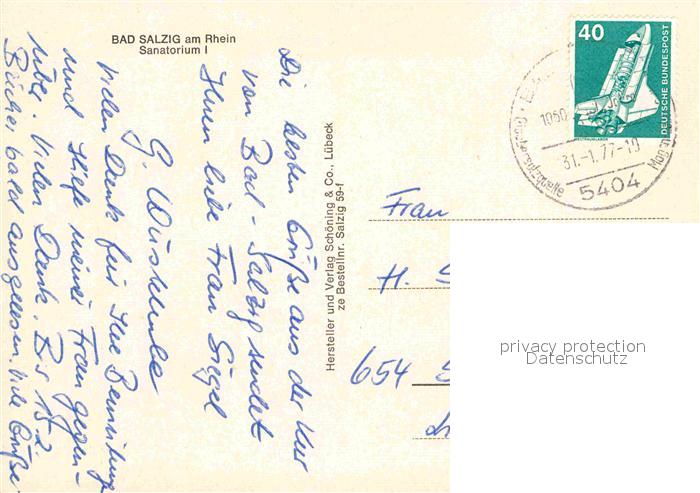 BAD SALZIG am Rhein
Sanatorium I
Die besten Grüße aus der Kur
von Bad-Salzig sendet
Ihnen liebe Frau Siegel
G.
Vielen Dank für Ihre Bemühung
und Hilfe meiner Frau gegen-
über. Vielen Dank. Bis 15.2
Bücher bald ausgelesen. Viele Grüße.
Hersteller und Verlag Schöning & Co., Lübeck
ze Bestellnr. Salzig 59-f
40
DEUTSCHE BUNDESPOST
WELTRAUMLABOR
31.-1.77-19
5404
Frau
H. S
654
privacy protection
Datenschutz